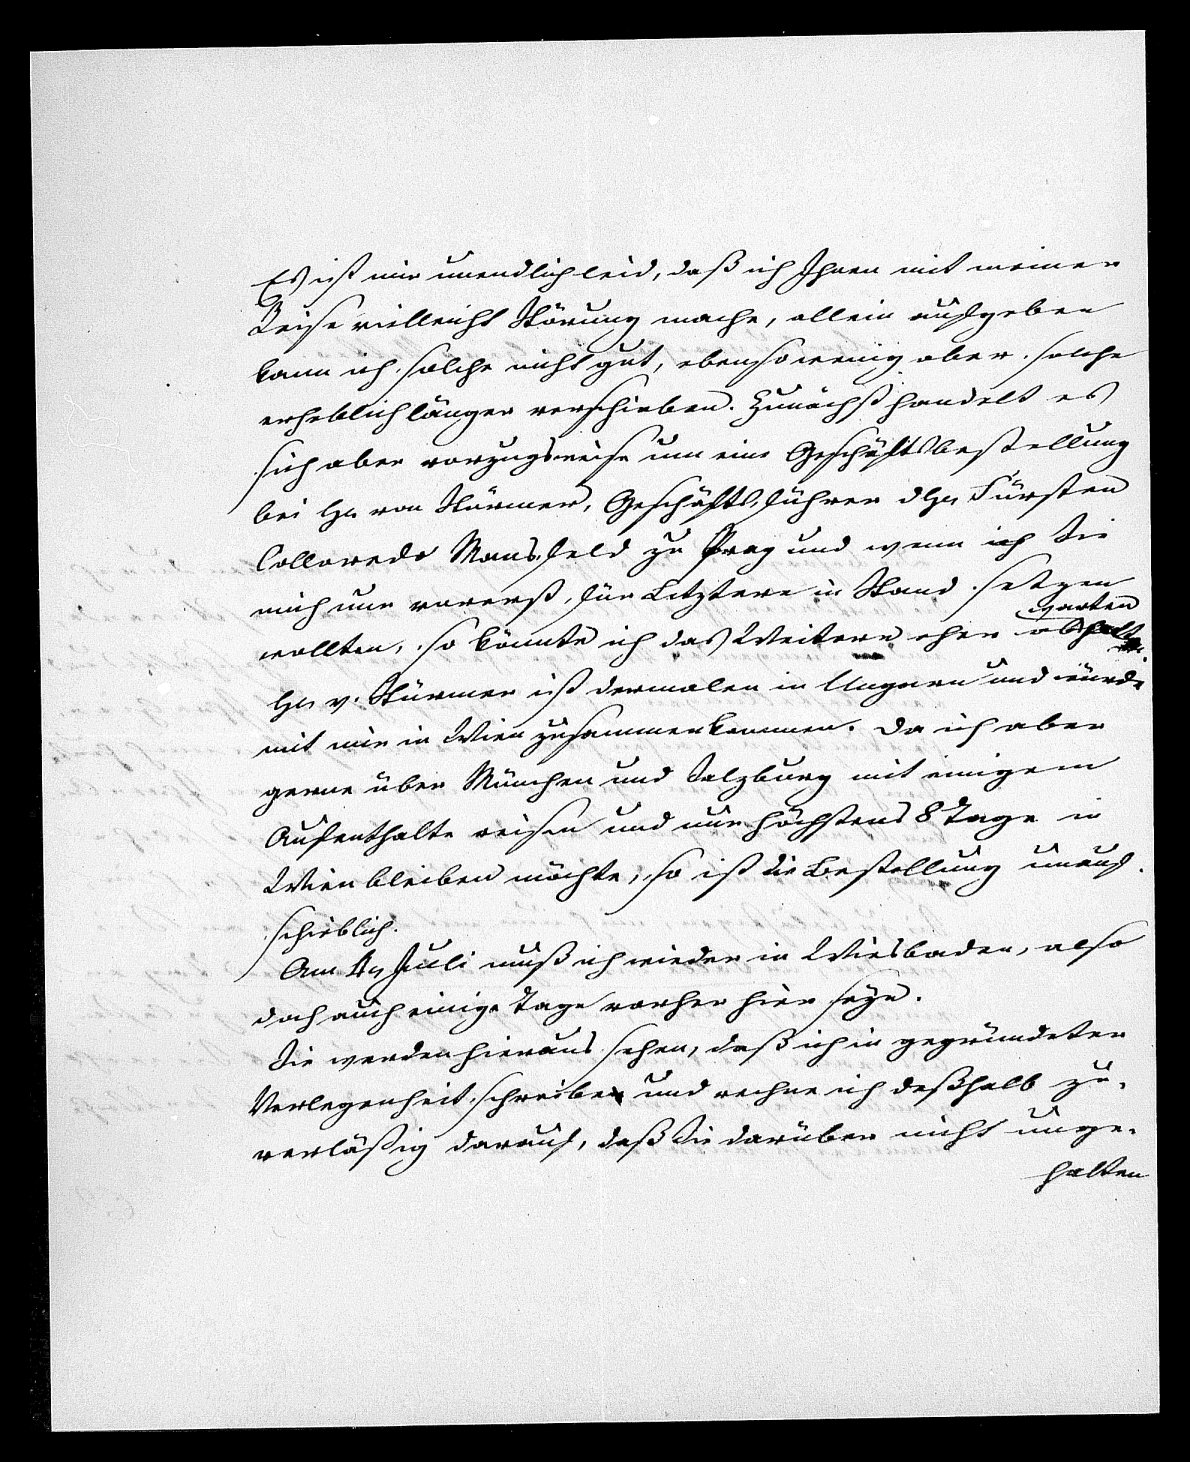 Es ist mir unendlich leid, daß ich Ihnen mit meiner
Reise vielleicht Störung mache, allein aufgeben
kann ich solche nicht gut, ebensowenig aber solche
erheblich länger verschieben. Zunächst handelt es
sich aber vorzugsweise um eine Geschäftsbestellung
bei Hr von Stürmer, Geschäftsführer des Fürsten
Colloredo Mansfeld zu Prag und wenn ich Sie
mich nur vorerst für Letztere in Stand setzen
wollten, so könnte ich das Weitere eher abwarten
Hr v. Stürmer ist dermalen in Ungarn und würde
mit mir in Wien zusammenkommen. Da ich aber
gerne über München und Salzburg mit einigem
Aufenthalte reisen und nur höchstens 8 Tage in
Wien bleiben möchte, so ist die Bestellung unauf-
schieblich.
Am 4n Juli muß ich wieder in Wiesbaden, also
doch auch einige Tage vorher hier seyn.
Sie werden hieraus sehen, daß ich in gegründeter
Verlegenheit schreibe und rechne ich deßhalb zu-
verläßig darauf, daß Sie darüber nicht unge-
halten